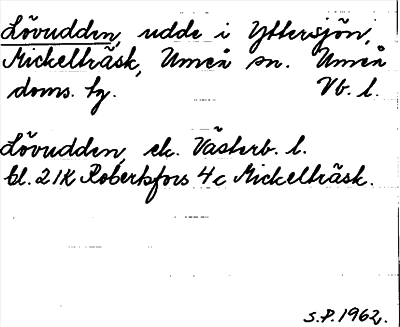 Lövudden, udde i Yttersjön,
Mickelträsk, Umeå sn. Umeå
doms. tg. Vb. l.
Lövudden, ek. Västerb. l.
bl. 21K Robertsfors 4c Mickelträsk.
S.P. 1962.